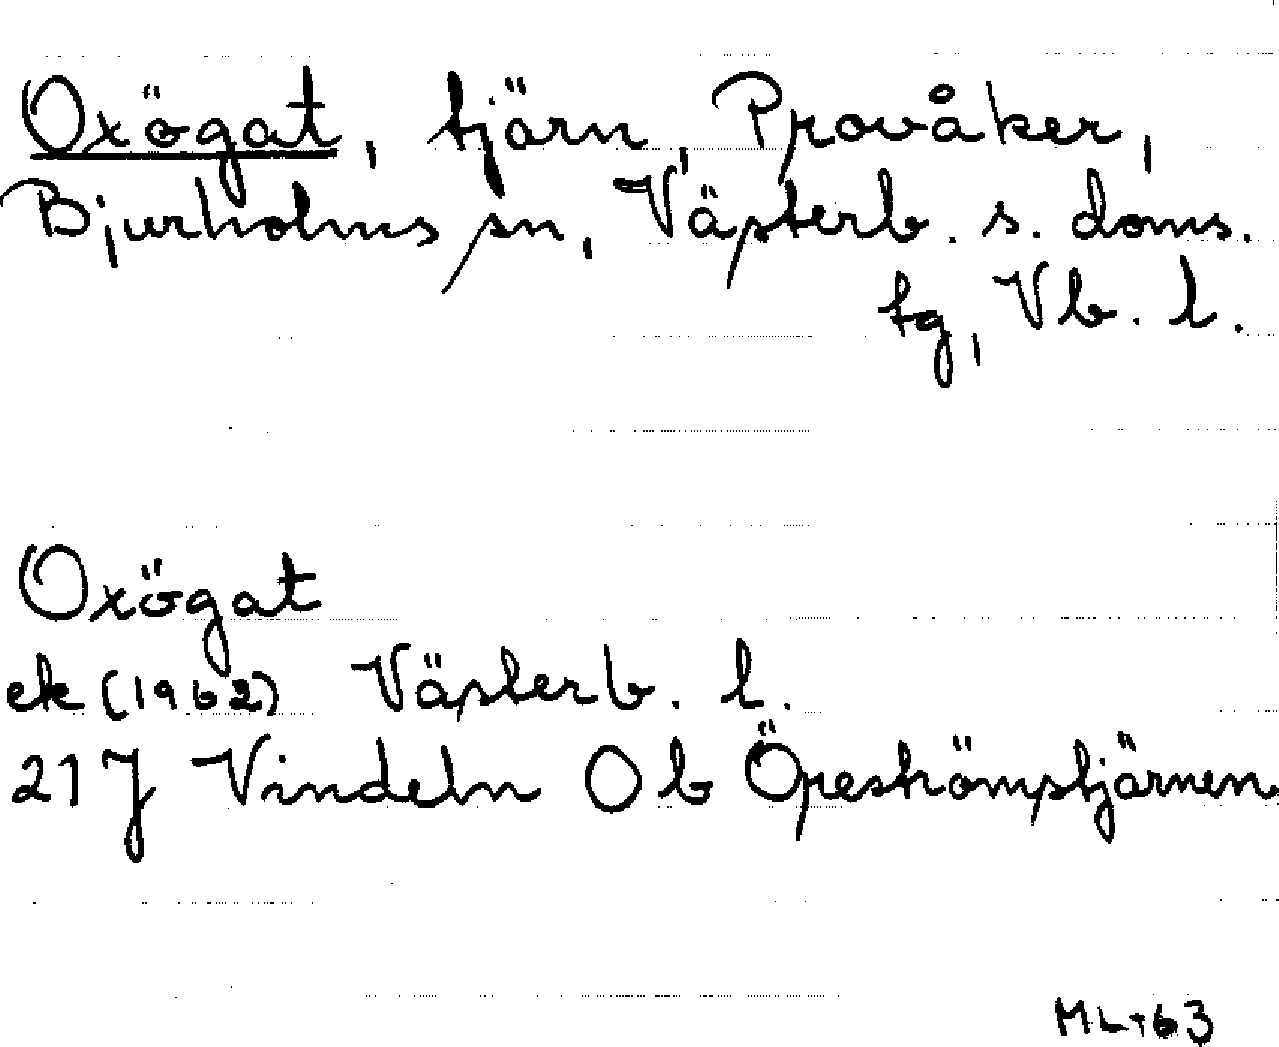 Oxögat, tjärn, Provåker,
Bjurholms sn, Västerb. s. doms.
tg, Vb. l.
Oxögat
ek (1962) Västerb. l.
21J Vindeln 0 b Öreströmstjärnen
ML-63